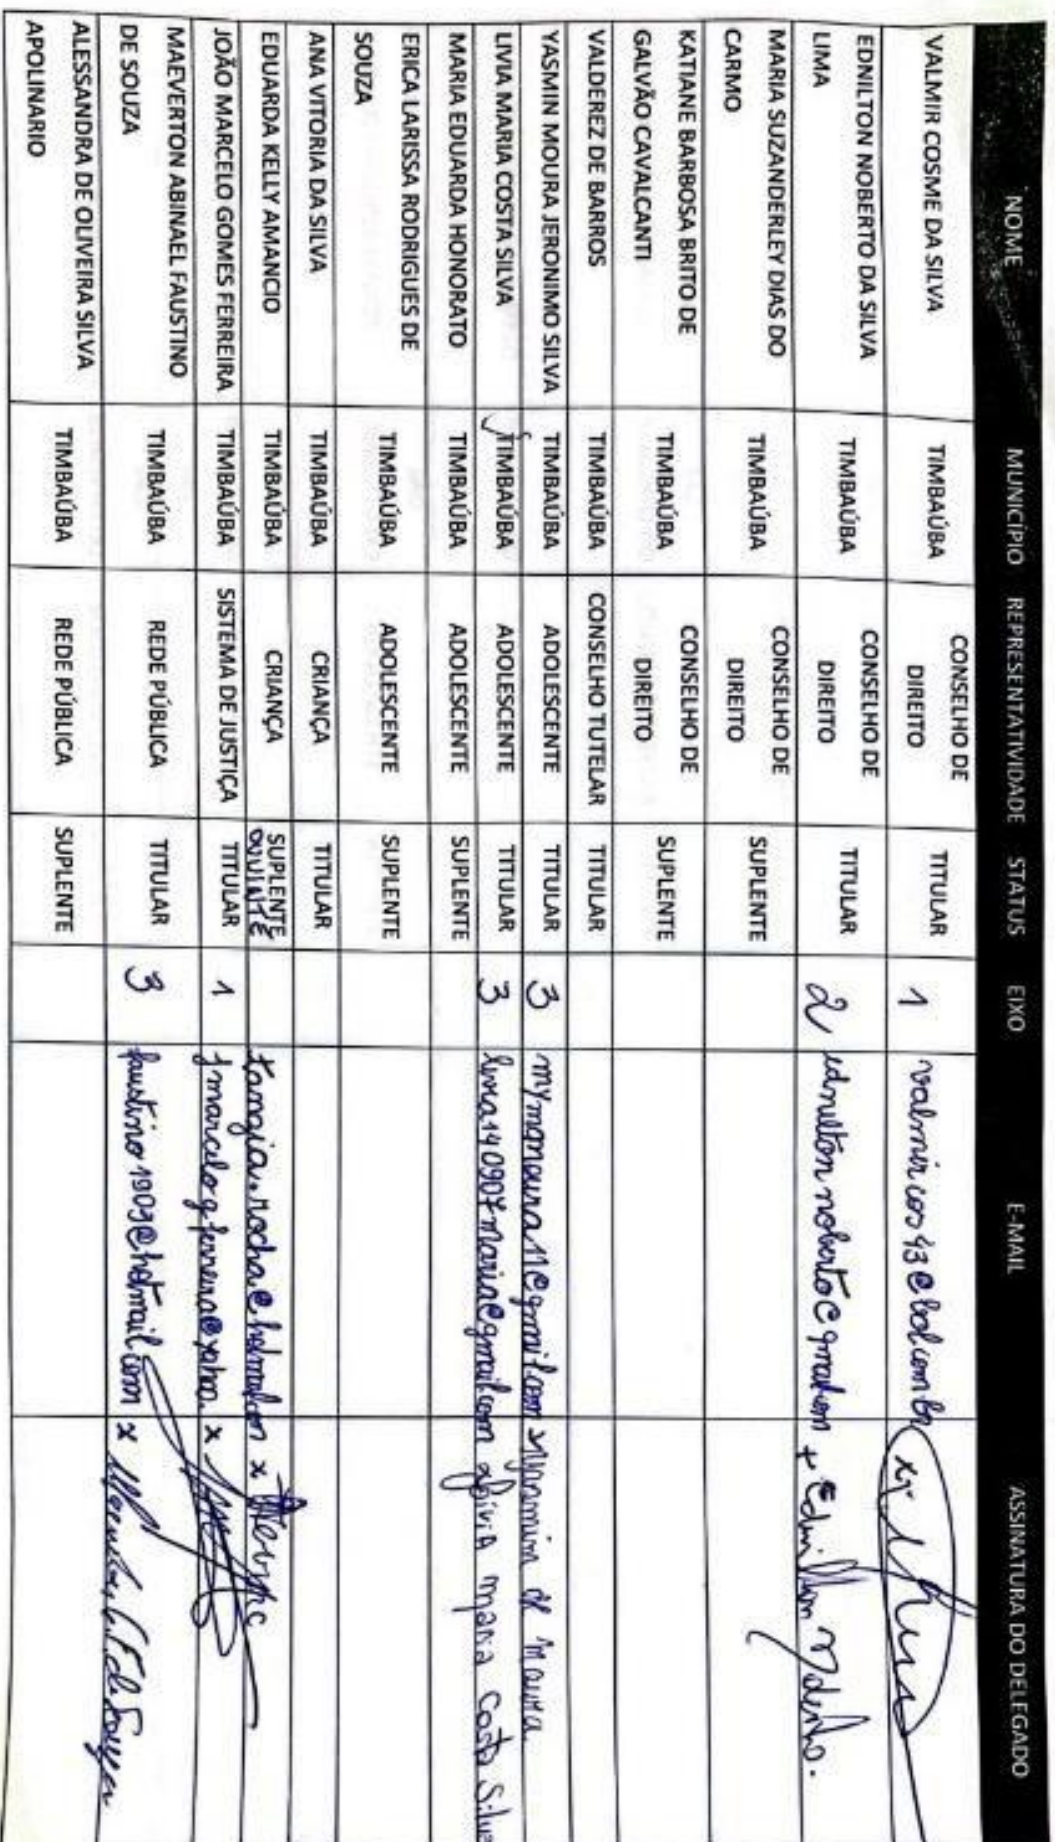 NOME MUNICÍPIO REPRESENTATIVIDADE STATUS EIXO E-MAIL ASSINATURA DO DELEGADO
VALMIR COSME DA SILVA TIMBAÚBA CONSELHO DE DIREITO TITULAR 1
EDNILTON NOBERTO DA SILVA LIMA TIMBAÚBA CONSELHO DE DIREITO TITULAR 2
MARIA SUZANDERLEY DIAS DO CARMO TIMBAÚBA CONSELHO DE DIREITO SUPLENTE
KATIANE BARBOSA BRITO DE GALVÃO CAVALCANTI TIMBAÚBA CONSELHO DE DIREITO SUPLENTE
VALDEREZ DE BARROS TIMBAÚBA CONSELHO TUTELAR TITULAR
YASMIN MOURA JERONIMO SILVA TIMBAÚBA ADOLESCENTE TITULAR 3
LIVIA MARIA COSTA SILVA TIMBAÚBA ADOLESCENTE TITULAR 3 livia140907maria@gmail.com Livia Maria Costa Silva
MARIA EDUARDA HONORATO TIMBAÚBA ADOLESCENTE SUPLENTE
ERICA LARISSA RODRIGUES DE SOUZA TIMBAÚBA ADOLESCENTE SUPLENTE
ANA VITORIA DA SILVA TIMBAÚBA CRIANÇA TITULAR
EDUARDA KELLY AMANCIO TIMBAÚBA CRIANÇA SUPLENTE OUVINTE
JOÃO MARCELO GOMES FERREIRA TIMBAÚBA SISTEMA DE JUSTIÇA TITULAR 1
MAEVERTON ABINAEL FAUSTINO DE SOUZA TIMBAÚBA REDE PÚBLICA TITULAR 3 faustino1909@hotmail.com x
ALESSANDRA DE OLIVEIRA SILVA APOLINARIO TIMBAÚBA REDE PÚBLICA SUPLENTE